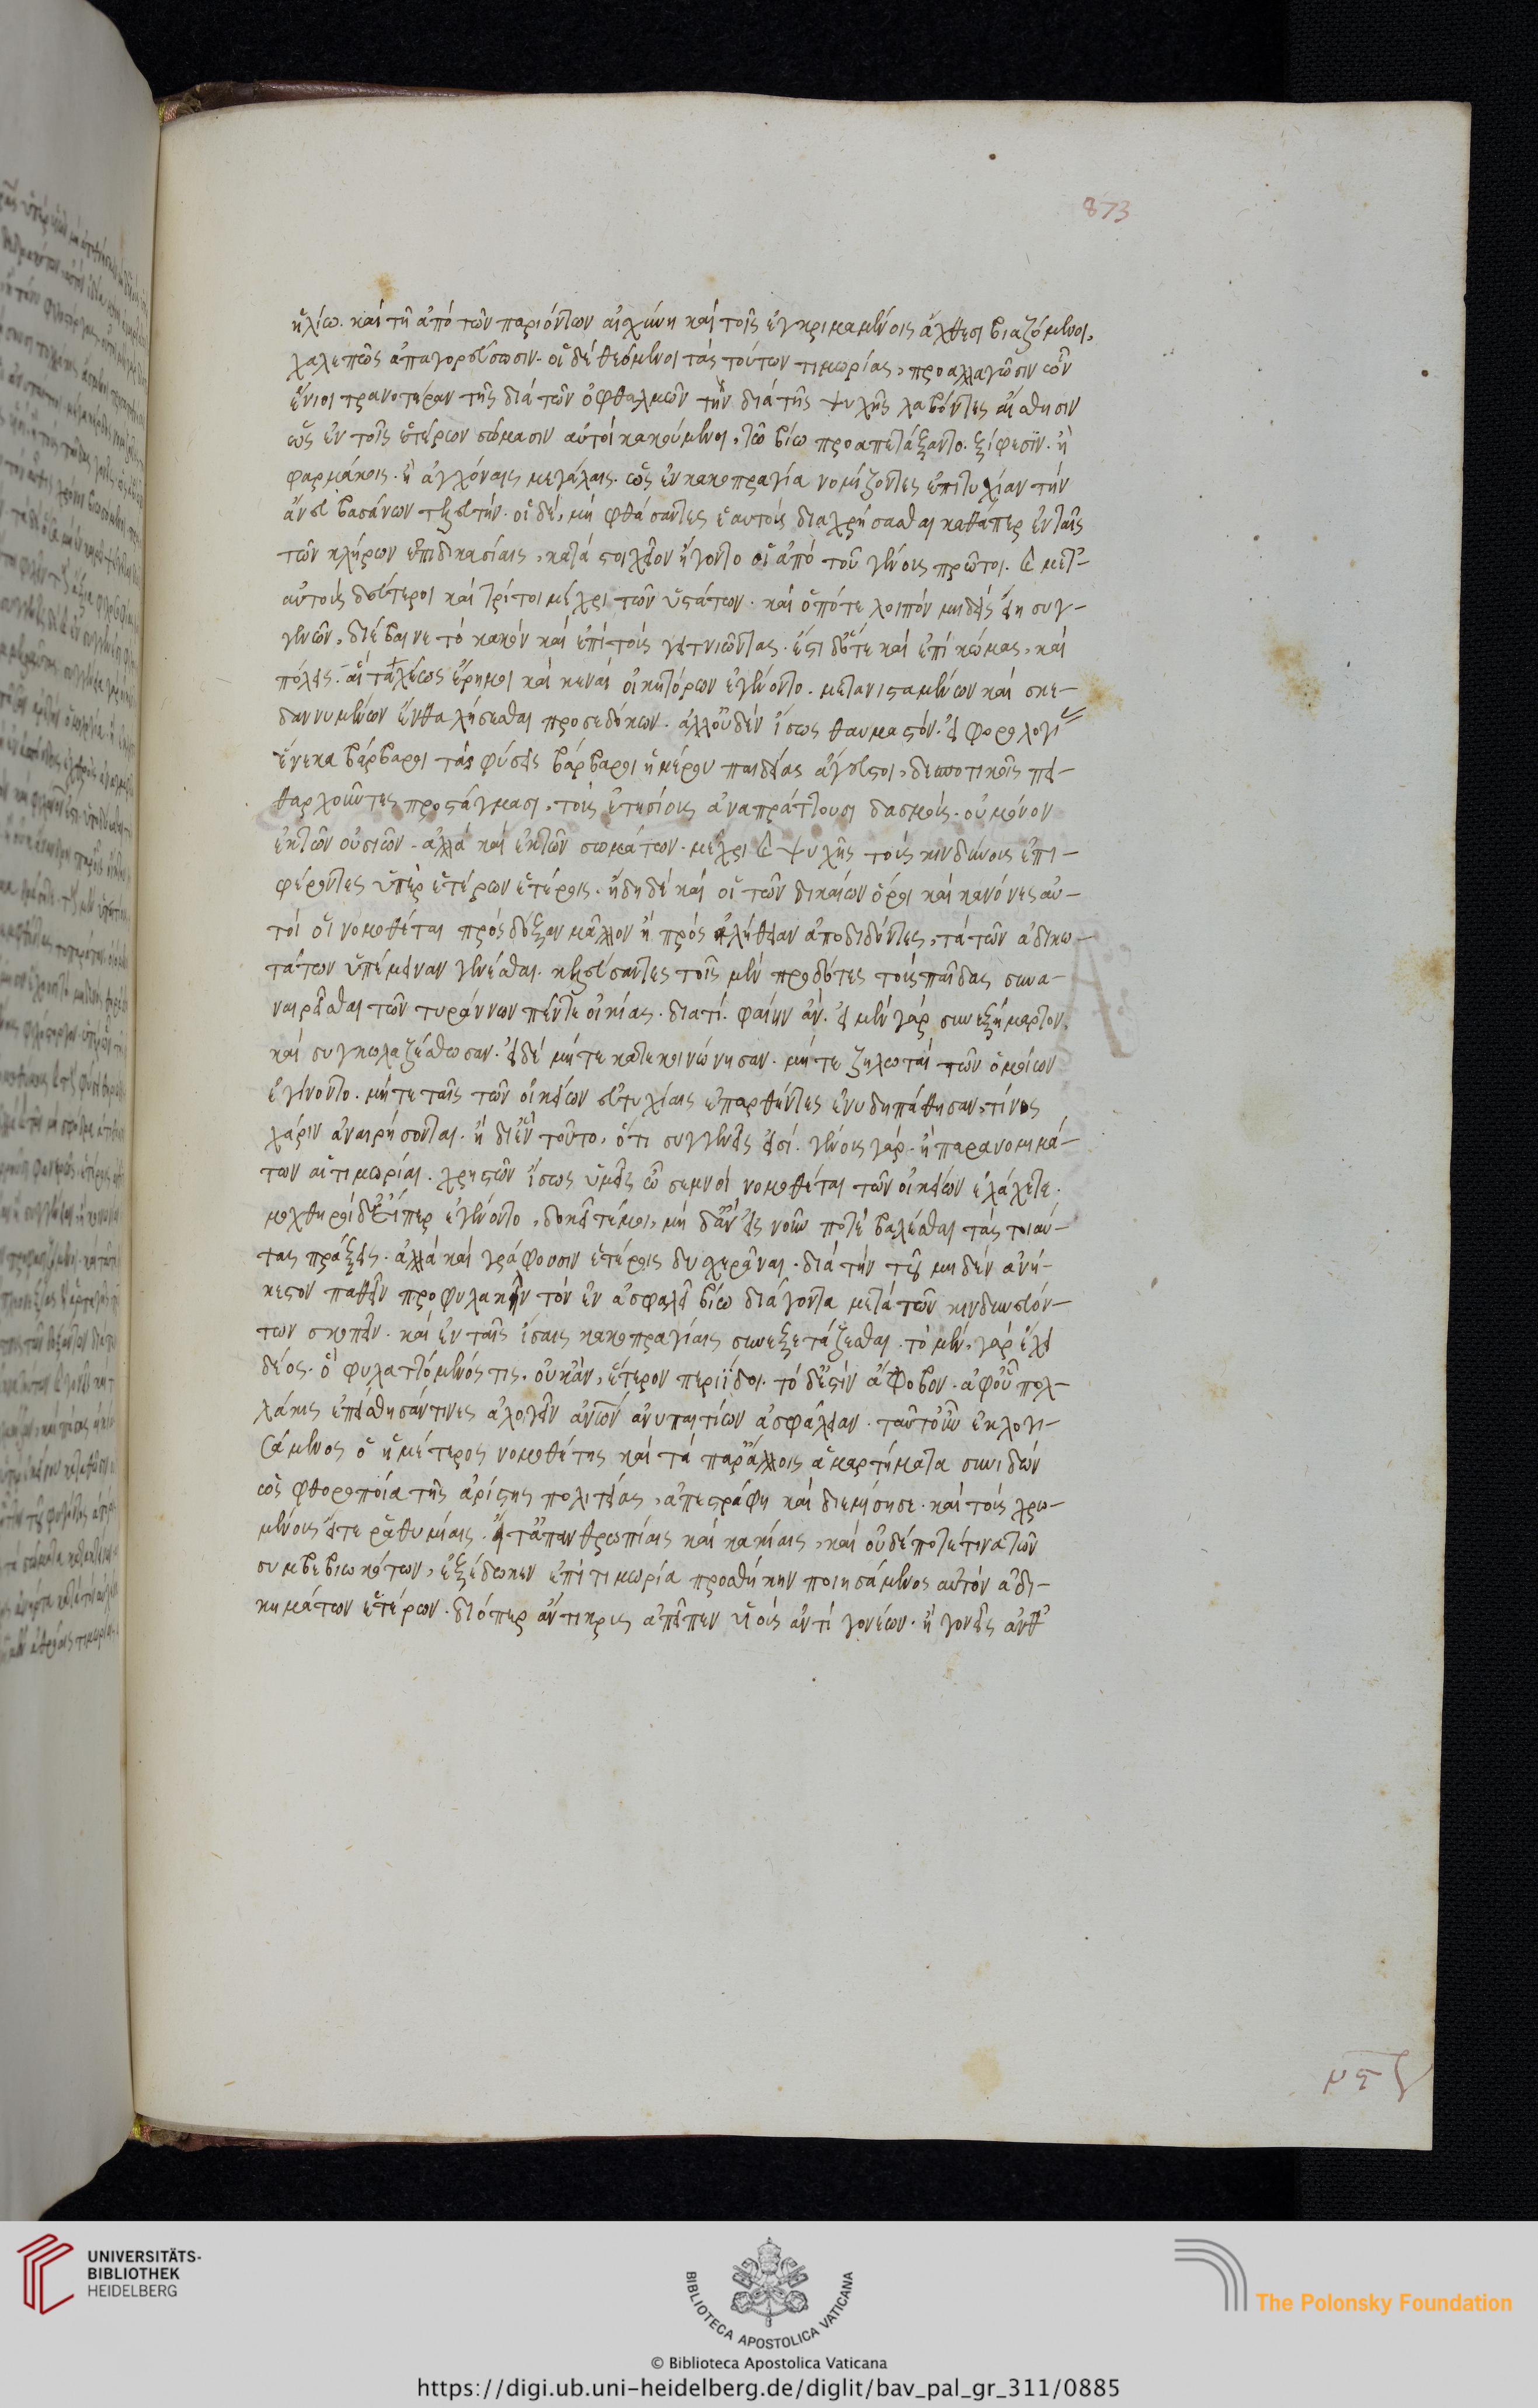 873
ἡλίω. καὶ τῆ ἀπὸ τῶν παριόντων αἰσχύνη καὶ τοῖς ἐγκριμαμένοις ἄχθεσι βιαζόμενοι,
χαλεπῶς ἀπαγορεύσωσιν. οἱ δὲ θεώμενοι τὰς τούτων τιμωρίας, προαλλαγῶσιν ὧν
ἔνιοι τρανοτέραν τῆς διὰ τῶν ὀφθαλμῶν τὴν διὰ τῆς ψυχῆς λαβόντες αἴσθησιν
ὡς ἐν τοῖς ἑτέρων σώμασιν αὐτοὶ κακούμενοι, τῶ βίω προαπετάξαντο. ξίφεσιν. ἢ
φαρμάκοις. ἢ ἀγχόναις μεγάλαις. ὡς ἐν κακοπραγία νομίζοντες ἐπιτυχίαν τὴν
ἄνευ βασάνων τελευτήν. οἱ δὲ, μὴ φθάσαντες ἑαυτοὺς διαχρήσασθαι καθάπερ ἐν ταῖς
τῶν κλήρων ἐπιδικασίαις, κατὰ στοῖχον ἤγοντο οἱ ἀπὸ τοῦ γένους πρῶτοι. καὶ μετ'
αὐτοὺς δεύτεροι καὶ τρίτοι μέχρι τῶν ὑστάτων. καὶ ὁπότε λοιπὸν μηδεὶς εἴη συγ-
γενῶν, διέβαινε τὸ κακὸν καὶ ἐπὶ τοὺς γειτνιῶντας. ἔστι δ' ὅτε καὶ ἐπὶ κώμας, καὶ
πόλεις. αἳ ταχέως ἔρημοι καὶ κεναὶ οἰκητόρων ἐγένοντο. μετανισταμένων καὶ σκε-
δαννυμένων ἔνθα λήσεσθαι προσεδόκων. ἀλλ' οὐδὲν ἴσως θαυμαστόν. εἰ φορολογί
ἕνεκα βάρβαροι τὰς φύσεις βάρβαροι ἡμέρου παιδείας ἄγευστοι, δεσποτικοῖς πει-
θαρχοῦντες προστάγμασι, τοὺς ἐτησίους ἀναπράττουσι δασμούς. οὐ μόνον
ἐκ τῶν οὐσιῶν. ἀλλὰ καὶ ἐκ τῶν σωμάτων. μέχρι καὶ ψυχῆς τοὺς κινδύνους ἐπι-
φέροντες ὑπὲρ ἑτέρων ἑτέροις. ἤδη δὲ καὶ οἱ τῶν δικαίων ὅροι καὶ κανόνες αὐ-
τοὶ οἱ νομοθέται πρὸς δόξαν μᾶλλον ἢ πρὸς ἀλήθειαν ἀποδιδόντες, τὰ τῶν ἀδικω-
τάτων ὑπέμειναν γενέσθαι. κελεύσαντες τοῖς μὲν προδότες τοὺς παῖδας συνα-
ναιρεῖσθαι τῶν τυράννων πέντε οἰκίας. διατί. φαίην ἄν. εἰ μὲν γὰρ συνεξήμαρτον,
καὶ συγκολαζέσθωσαν. εἰ δὲ μήτε κατεκοινώνησαν. μήτε ζηλωταὶ τῶν ὁμοίων
ἐγίνοντο. μήτε ταῖς τῶν οἰκείων εὐτυχίαις ἐπαρθέντες ἐνυδηπάθησαν, τίνος
χάριν ἀναιρήσονται. ἢ δι' ἓν τοῦτο, ὅτι συγγενεῖς εἰσί. γένους γὰρ. ἢ παρανομιμά-
των αἱ τιμωρίαι. χρηστῶν ἴσως ὑμεῖς ὦ σεμνοὶ νομοθέται τῶν οἰκείων ἐλάχετε.
μοχθηροὶ δὲ εἴπερ ἐγένοντο, δοκεῖτέ μοι, μὴ δ' ἂν εἰς νοῦν ποτὲ βαλέσθαι τὰς τοιαύ-
τας πράξεις. ἀλλὰ καὶ γράφουσιν ἑτέροις δυσχερᾶναι. διὰ τὴν τοῦ μηδὲν ἀνή-
κεστον παθεῖν προφυλακὴν τὸν ἐν ἀσφαλεῖ βίω διάγοντα μετὰ τῶν κινδυνευόν-
των σκοπεῖν. καὶ ἐν ταῖς ἴσαις κακοπραγίαις συνεξετάζεσθαι. τὸ μὲν, γὰρ ἔχει
δέος. ὃ φυλαττόμενός τις. οὐκ ἂν, ἕτερον περιίδοι. τὸ δ' ἐστὶν ἄφοβον. ἀφ' οὗ πολ-
λάκις ἐπείσθησάν τινες ἀλογεῖν ἀνων ἀνυπαιτίων ἀσφάλειαν. ταῦτ' οὖν ἐκλογι-
σάμενος ὁ ἡμέτερος νομοθέτης καὶ τὰ παρ' ἄλλοις ἁμαρτήματα συνιδὼν
ὡς φθοροποιὰ τῆς ἀρίστης πολιτείας, ἀπεστράφη καὶ διεμίσησε. καὶ τοὺς χρω-
μένους εἴτε ῥαθυμίαις. ἢ τ' ἀπανθρωπίαις καὶ κακίαις, καὶ οὐδέποτε τινα τῶν
συμβεβιωκότων, ἐξέδωκεν ἐπὶ τιμωρία προσθήκην ποιησάμενος αὐτὸν ἀδι-
κημάτων ἑτέρων. διόπερ ἄντικρυς ἀπεῖπεν υἱοὺς ἀντὶ γονέων. ἢ γονεῖς ἀνθ'
UNIVERSITÄTS-
BIBLIOTHEK
HEIDELBERG
BIBLIOTECA APOSTOLICA VATICANA
The Polonsky Foundation
© Biblioteca Apostolica Vaticana
https://digi.ub.uni-heidelberg.de/diglit/bav_pal_gr_311/0885